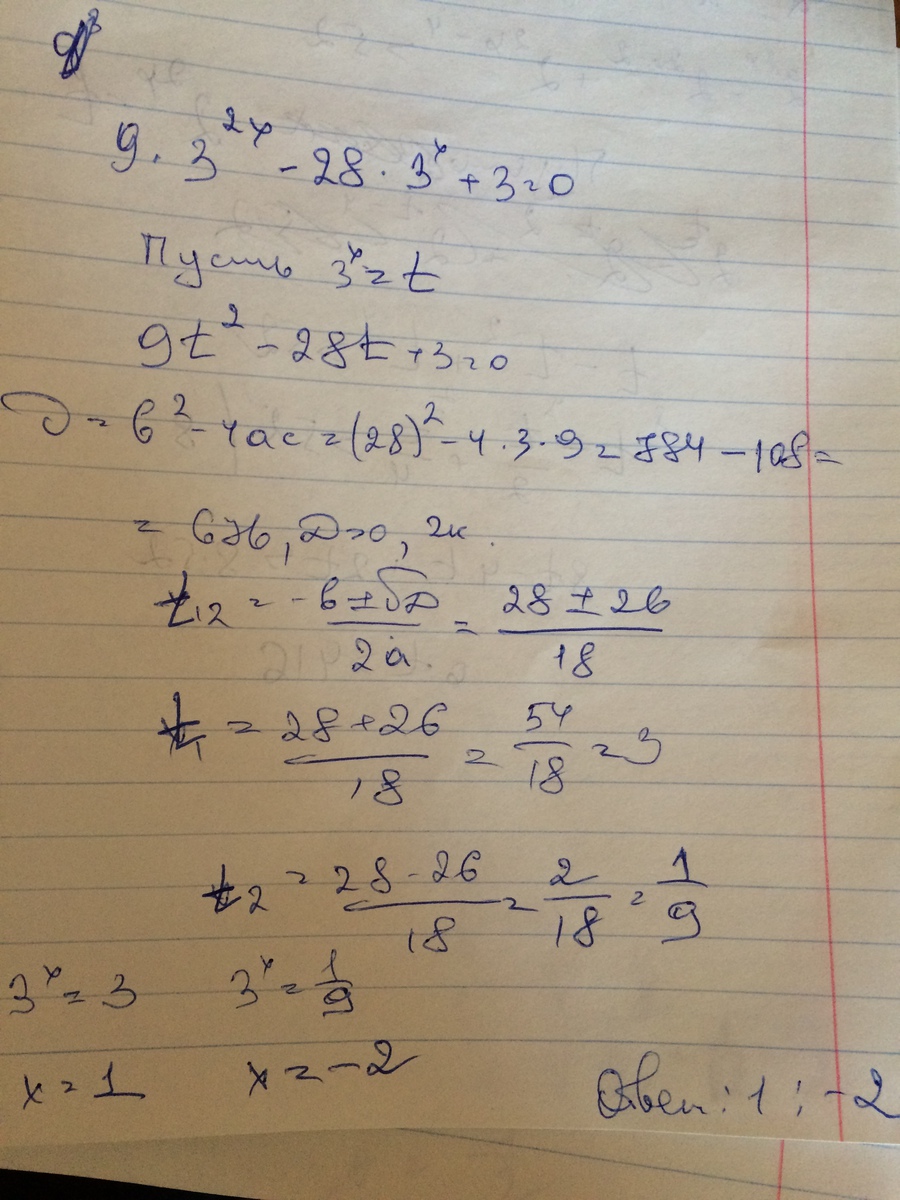 9 · 3^{2x} - 28 · 3^x + 3 = 0
Пусть 3^x = t
9t^2 - 28t + 3 = 0
D = b^2 - 4ac = (28)^2 - 4 · 3 · 9 = 784 - 108 =
= 676, D>0, 2к.
t_{12} = \frac{-b ± √D}{2a} = \frac{28 ± 26}{18}
t_1 = \frac{28 + 26}{18} = \frac{54}{18} = 3
t_2 = \frac{28 - 26}{18} = \frac{2}{18} = \frac{1}{9}
3^x = 3 3^x = \frac{1}{9}
x = 1 x = -2
Ответ: 1 ; -2